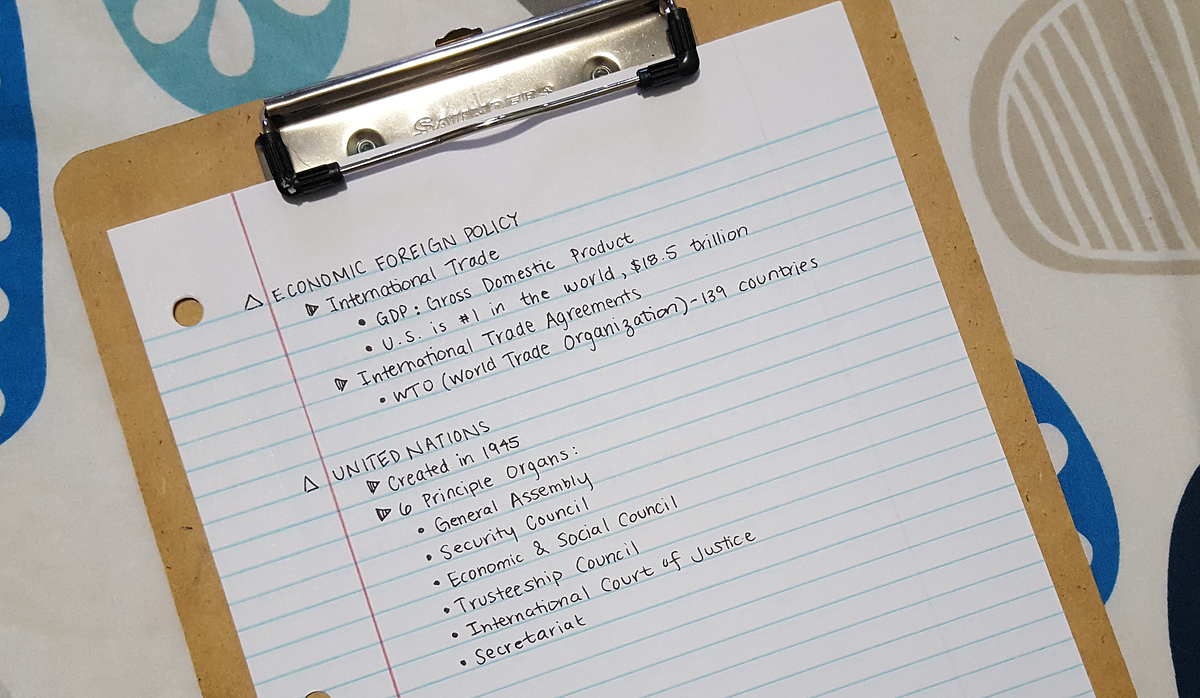 SAUNDERS
△ ECONOMIC FOREIGN POLICY
▷ International Trade
• GDP: Gross Domestic Product
• U.S. is #1 in the world, $18.5 trillion
▷ International Trade Agreements
• WTO (World Trade Organization) - 139 countries
△ UNITED NATIONS
▷ Created in 1945
▷ 6 Principle Organs:
• General Assembly
• Security Council
• Economic & Social Council
• Trusteeship Council
• International Court of Justice
• Secretariat